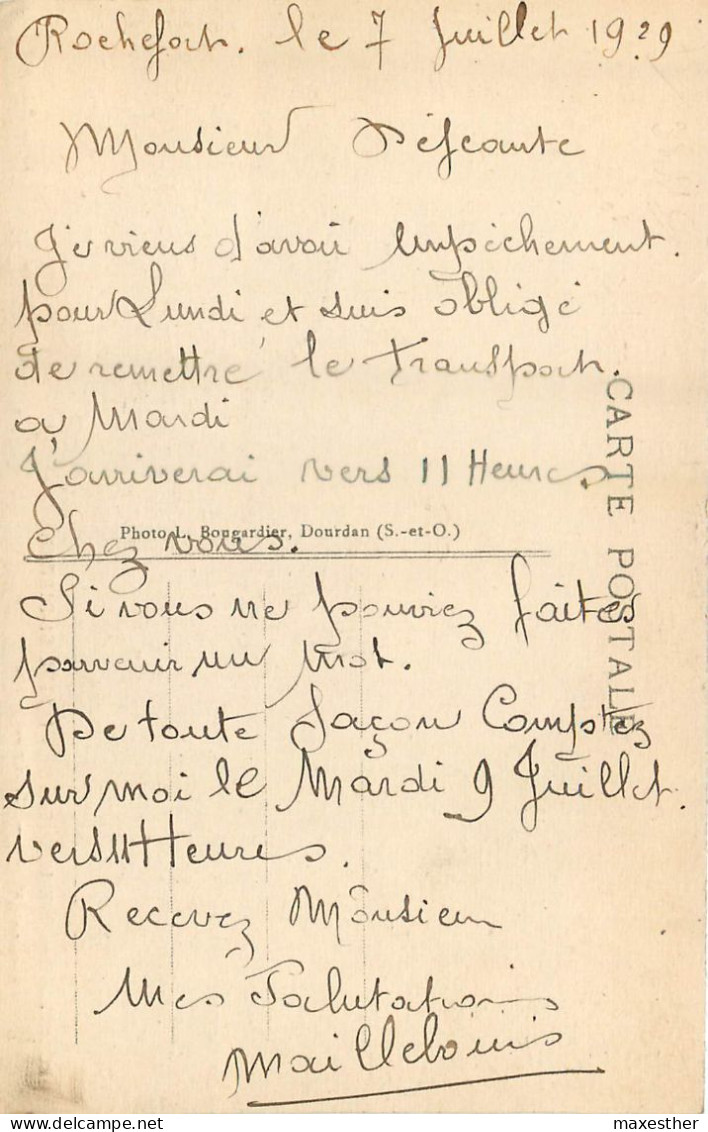 Rochefort. le 7 Juillet 1929
Monsieur
Je viens d'avoir empêchement.
pour Lundi et suis obligé
de remettre le transport.
a Mardi
J'arriverai vers 11 Heures
Photo L. Bongardier, Dourdan (S.-et-O.)
chez vous.
Si vous ne pouviez faites
parvenir un mot.
De toute façon Comptez
sur moi le Mardi 9 Juillet.
vers 11 Heures.
Recevez Monsieur
Mes Salutations
Maillebouis
CARTE POSTALE
Delcampe.net
maxesther